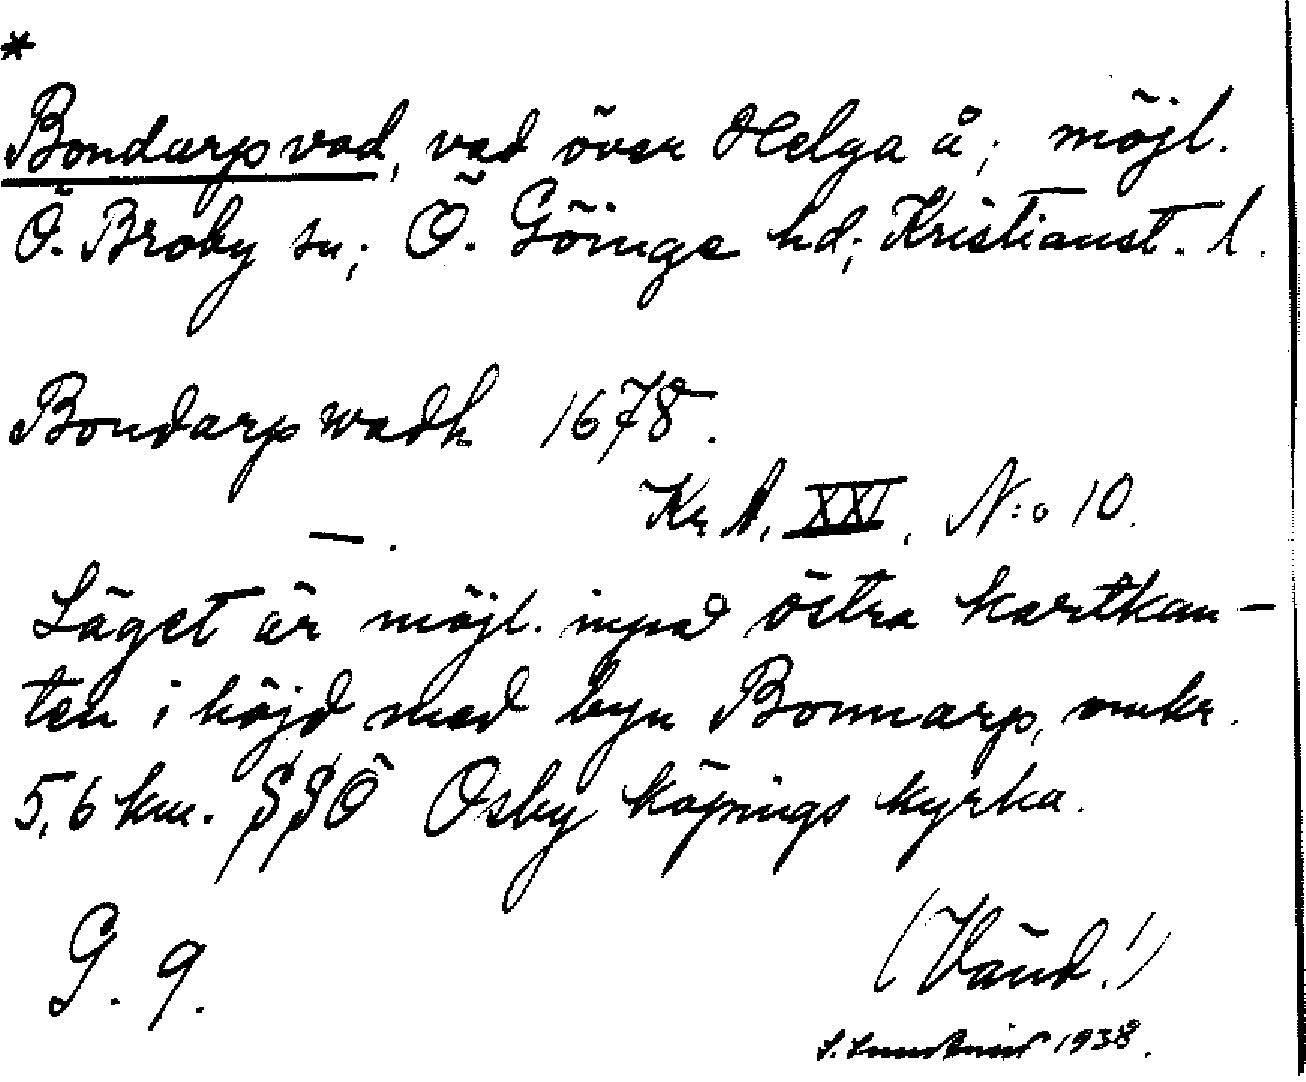 *
Bondarp vad, vad över Helga å; möjl.
Ö. Broby sn; Ö. Göinge hd; Kristianst. l.
Bondarp wadh 1678.
Kr. A. XXI, N:o 10.
—.
Läget är möjl. inpå östra kartkan-
ten i höjd med byn Bonnarp, omkr.
5,6 km. SSÖ Osby köpings kyrka.
G. 9.
(Vänd!)
1938.